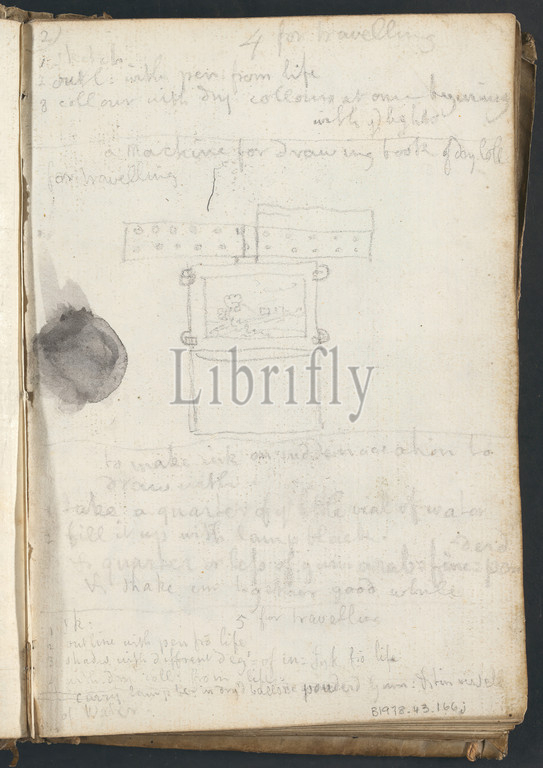 2)
4 for travelling
1 sketch
2 outl: with pen from life
3 collour with dry collours at once begining
with y lights
a Machine for drawing book of dry Coll
for travelling
Librifly
to make ink on sudden occation to
draw with
1 take a quarter of y little vial of water
2 fill it up with lamp black
3 & quarter or less of gum arab: fine: pow
derd
& shake em together good while
5 for travelling
1 sk:
2 outline with pen fro life
3 shades with different deg: of In: Ink fro life
4 with dry coll: from life
carry lamp be: in powderd Gum
of Water
B1978.43.166j